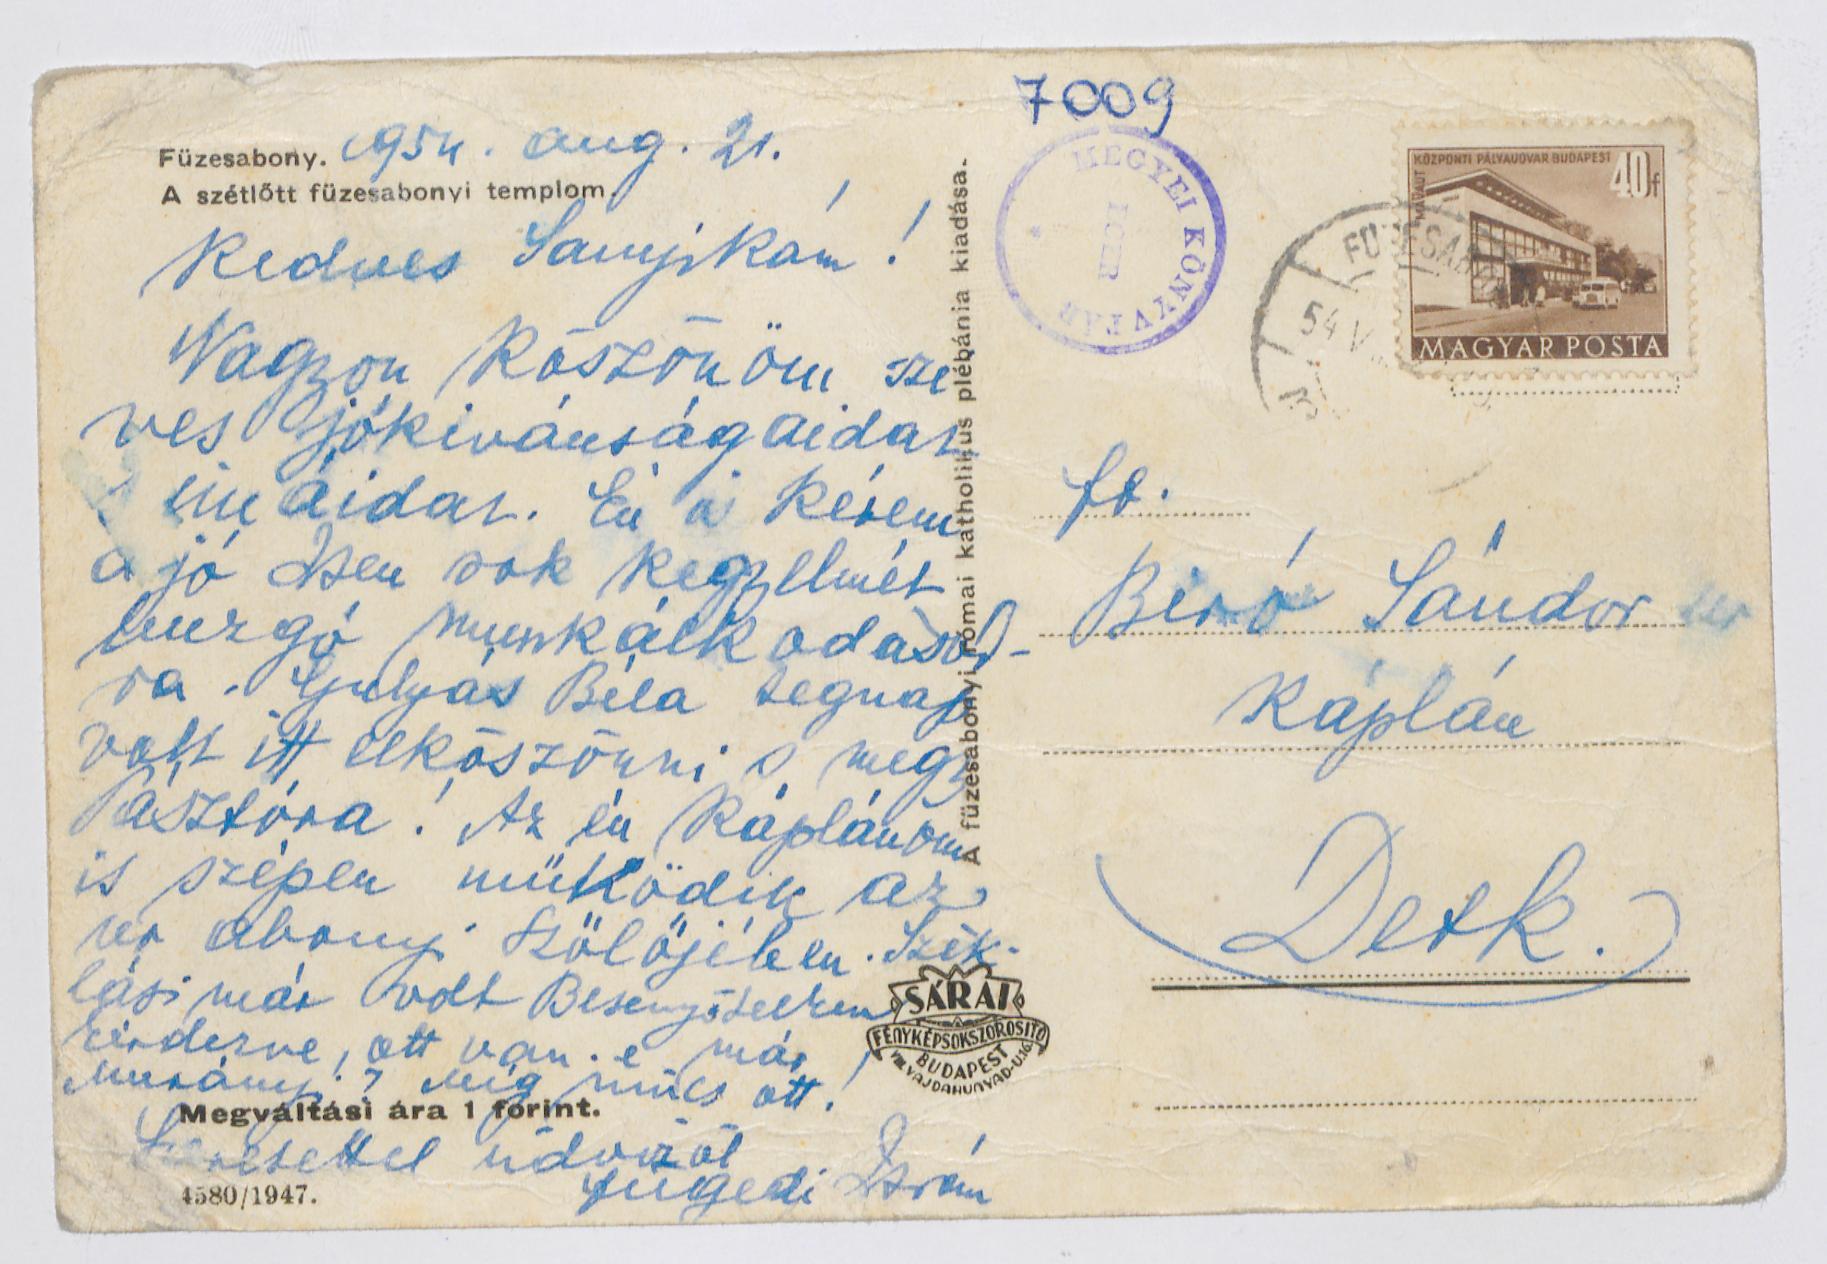 Füzesabony. 1954. aug. 21.
A szétlőtt füzesabonyi templom.
Kedves Sanyikám!
Nagyon köszönöm szi
ves jókivánságaidat
imáidat. Én is kérem
a jó Isten sok kegyelmét
buzgó munkálkodásod-
ra. Gulyás Béla tegnap
volt itt elköszönni s megy
Pásztóra! Az én káplánom
is szépen működik az
Úr abonyi szőlőjében. Szik-
lási már volt Besenyőtelken
kérdezve, ott van-e már
Murányi? Még nincs ott!
Megváltási ára 1 forint.
Szeretettel üdvözöl
István
4580/1947.
A füzesabonyi római katholikus plébánia kiadása.
7009
MEGYEI KÖNYVTÁR
EGER
KÖZPONTI PÁLYAUDVAR BUDAPEST
40f
MÁVAUT
MAGYAR POSTA
FÜZESABONY
54 V
ft.
Biró Sándor úr
káplán
Detk.
SÁRAI
FÉNYKÉPSOKSZOROSITÓ
BUDAPEST
VIII. VAJDAHUNYAD-U.